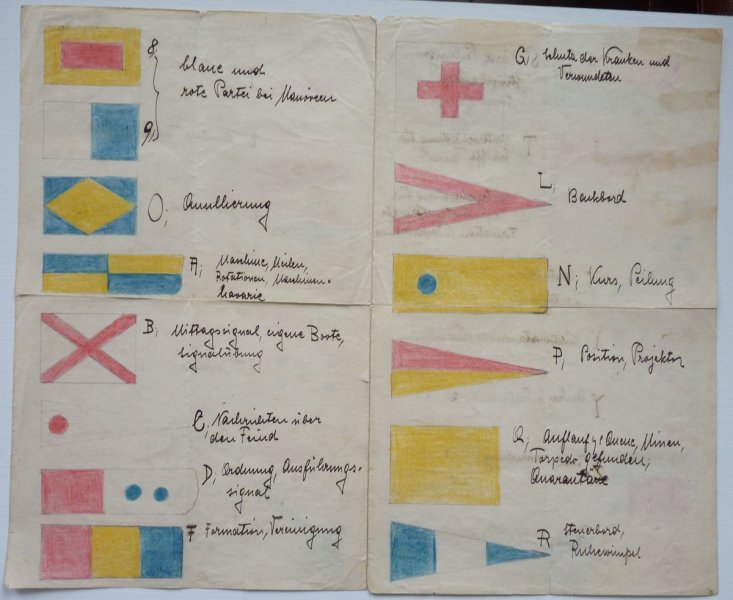 8,
blaue und
rote Partei bei Manövern
9,
O, Anullierung
A, Maschine, Meilen,
Rotationen, Maschinen-
havarie
B, Mittagsignal, eigene Boote,
Signalübung
C, Nachrichten über
den Feind
D, Ordnung, Ausführungs-
signal
F Formation, Vereinigung
G, Schutz der Kranken und
Verwundeten
L, Backbord
N, Kurs, Peilung
P, Position, Projektor
Q, Minen,
Torpedo gefunden,
Quarantäne
R Steuerbord,
Ruhewimpel